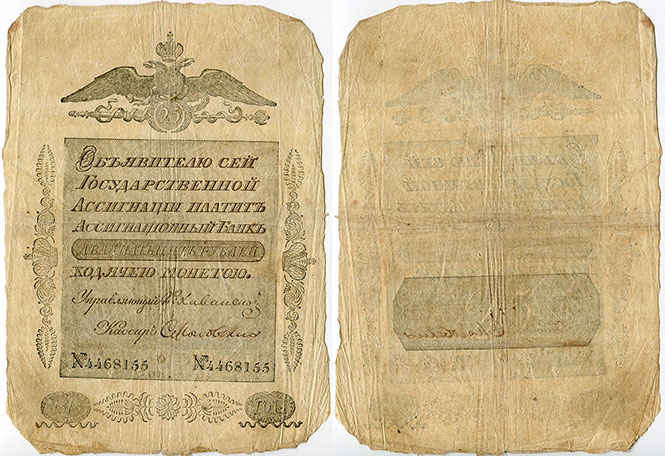 25
Объявителю сей
Государственной
Ассигнаціи платитъ
Ассигнаціонный Банкъ
двадцать пять рублей
ходячею монетою.
Управляющій
Кассиръ
№4468155 №4468155